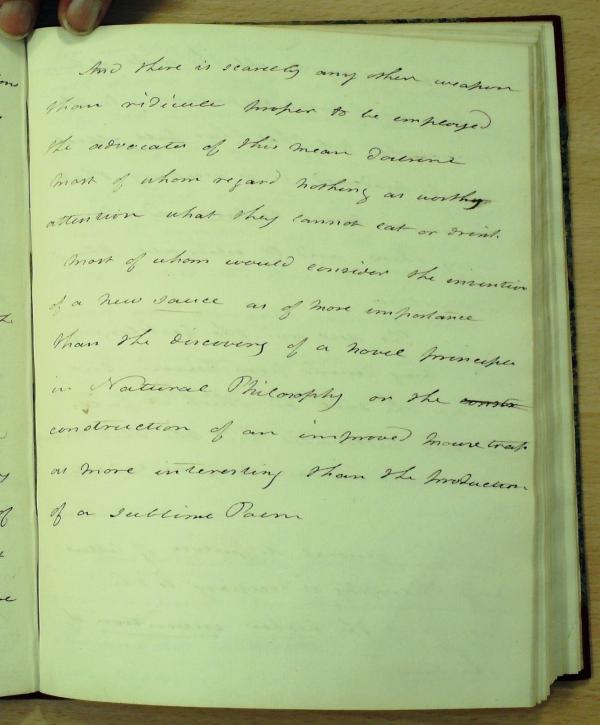 And there is scarcely any other weapon
than ridicule proper to be employed
the advocates of this mean doctrine
most of whom regard nothing as worthy
attention what they cannot eat or drink.
Most of whom would consider the invention
of a new sauce as of more importance
than the discovery of a novel principle
in Natural Philosophy or the constr
construction of an improved mouse trap
as more interesting than the production
of a sublime Poem